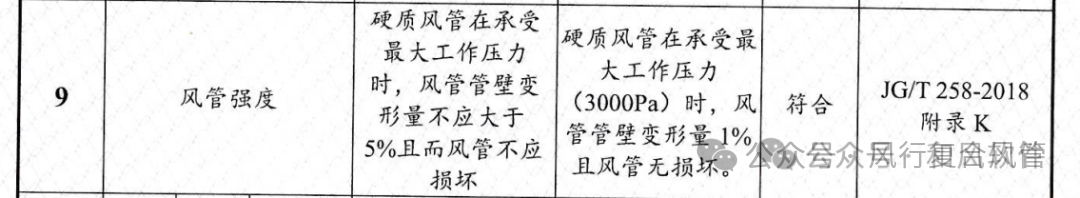 9
风管强度
硬质风管在承受
最大工作压力
时，风管管壁变
形量不应大于
5%且而风管不应
损坏
硬质风管在承受最
大工作压力
（3000Pa）时，风
管管壁变形量 1%
且风管无损坏。
符合
JG/T 258-2018
附录 K